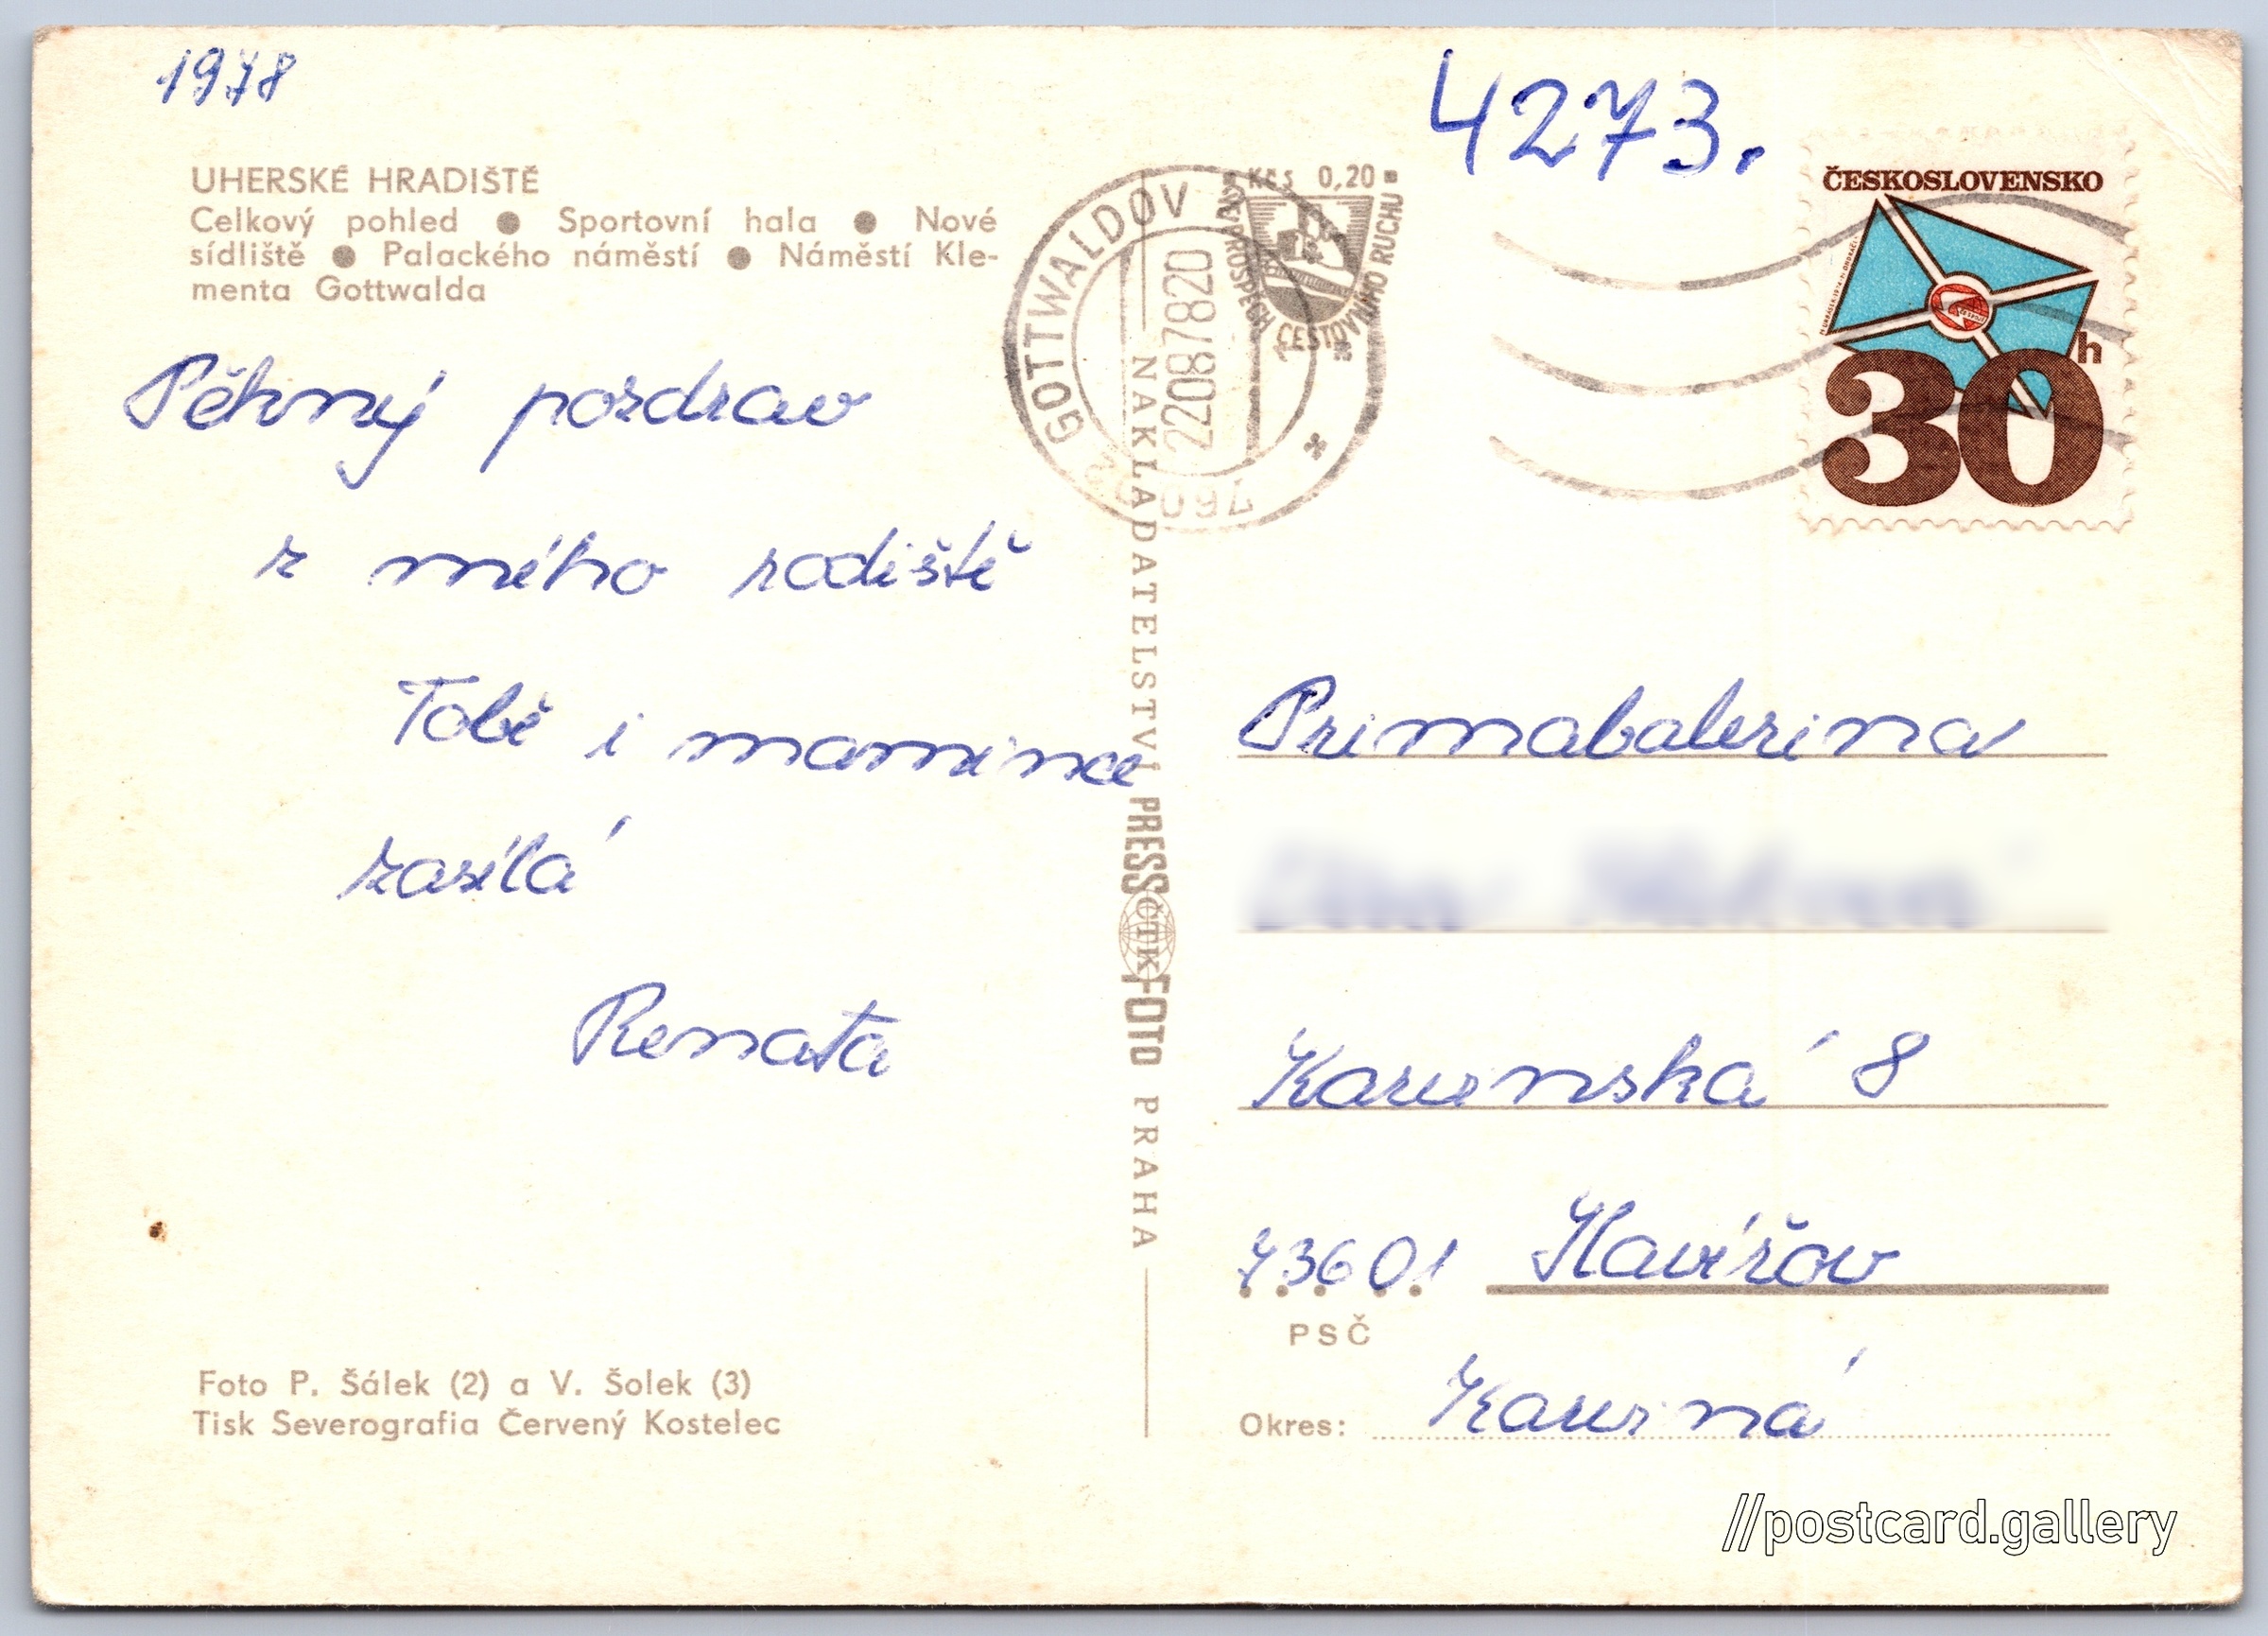 1978
4273.
UHERSKÉ HRADIŠTĚ
Celkový pohled ● Sportovní hala ● Nové
sídliště ● Palackého náměstí ● Náměstí Kle-
menta Gottwalda
GOTTWALDOV
760
220878-20
Kčs 0,20
VE PROSPĚCH CESTOVNÍHO RUCHU
ČESKOSLOVENSKO
30h
Pěkný pozdrav
z mého rodiště
Tobě i mamince
zasílá
Renata
NAKLADATELSTVÍ PRESSFOTO PRAHA
ČTK
Primabalerina
Karvinská 8
73601 Havířov
PSČ
Okres: Karviná
Foto P. Šálek (2) a V. Šolek (3)
Tisk Severografia Červený Kostelec
//postcard.gallery